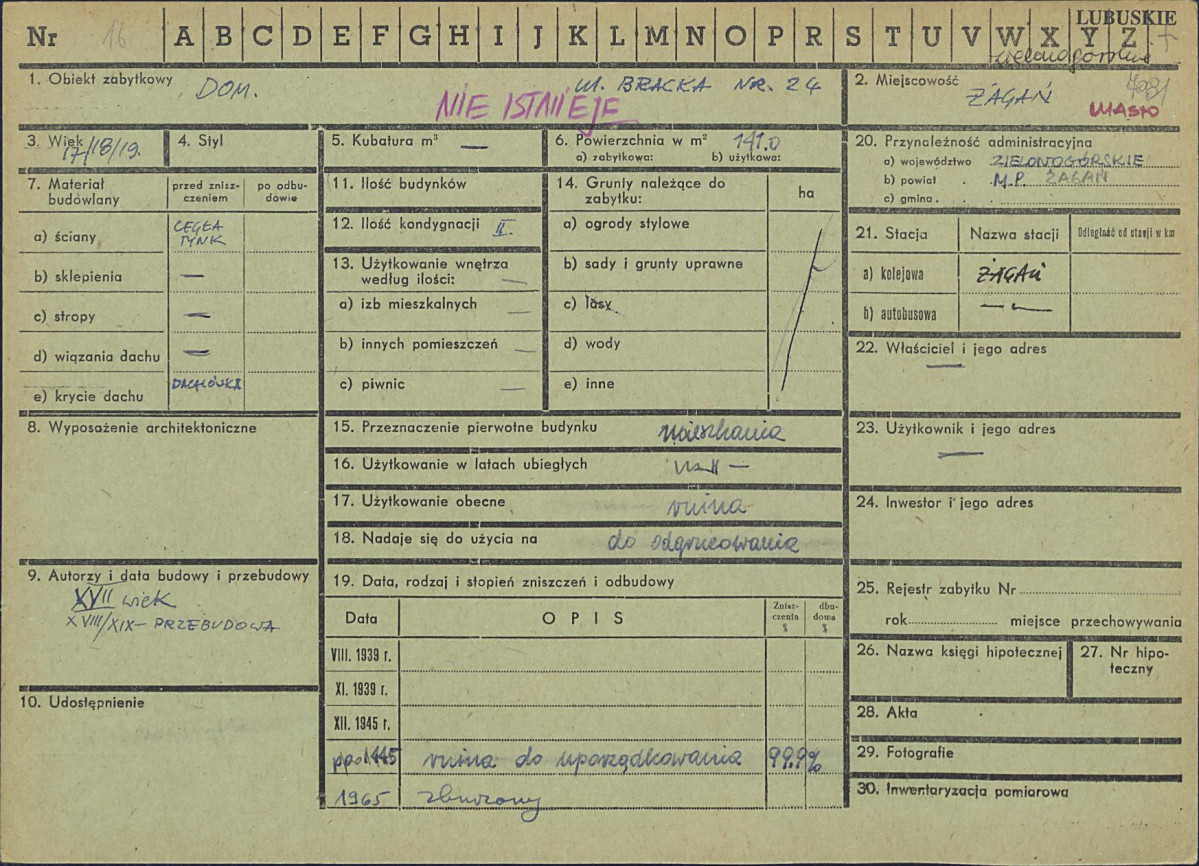 LUBUSKIE
Nr 16 A B C D E F G H I J K L M N O P R S T U V W X Y Z
zielonogórskie
1. Obiekt zabytkowy DOM. ul. BRACKA NR. 24
NIE ISTNIEJE
2. Miejscowość ŻAGAŃ
MIASTO
3. Wiek 17/18/19.
4. Styl
5. Kubatura m³ —
6. Powierzchnia w m² 141.0
a) zabytkowa: b) użytkowa:
7. Materiał budowlany
przed zniszczeniem
po odbudowie
a) ściany CEGŁA TYNK
b) sklepienia —
c) stropy —
d) wiązania dachu —
e) krycie dachu DACHÓWKA
8. Wyposażenie architektoniczne
9. Autorzy i data budowy i przebudowy
XVII wiek
XVIII/XIX – PRZEBUDOWA
10. Udostępnienie
11. Ilość budynków
12. Ilość kondygnacji II.
13. Użytkowanie wnętrza
według ilości: —
a) izb mieszkalnych —
b) innych pomieszczeń —
c) piwnic —
14. Grunty należące do
zabytku:
ha
a) ogrody stylowe
b) sady i grunty uprawne
c) lasy
d) wody
e) inne
15. Przeznaczenie pierwotne budynku mieszkania
16. Użytkowanie w latach ubiegłych —ıı—
17. Użytkowanie obecne ruina
18. Nadaje się do użycia na do odgruzowania
19. Data, rodzaj i stopień zniszczeń i odbudowy
Data OPIS Zniszczenia % dbudowa %
VIII. 1939 r.
XI. 1939 r.
XII. 1945 r.
po 1945 ruina do uporządkowania 99,9%
1965 zburzony
20. Przynależność administracyjna
a) województwo ZIELONOGÓRSKIE
b) powiat M.P. ŻAGAŃ
c) gmina
21. Stacja Nazwa stacji Odległość od stacji w km
a) kolejowa ŻAGAŃ
b) autobusowa —
22. Właściciel i jego adres
—
23. Użytkownik i jego adres
—
24. Inwestor i jego adres
25. Rejestr zabytku Nr
rok miejsce przechowywania
26. Nazwa księgi hipotecznej
27. Nr hipoteczny
28. Akta
29. Fotografie
30. Inwentaryzacja pomiarowa